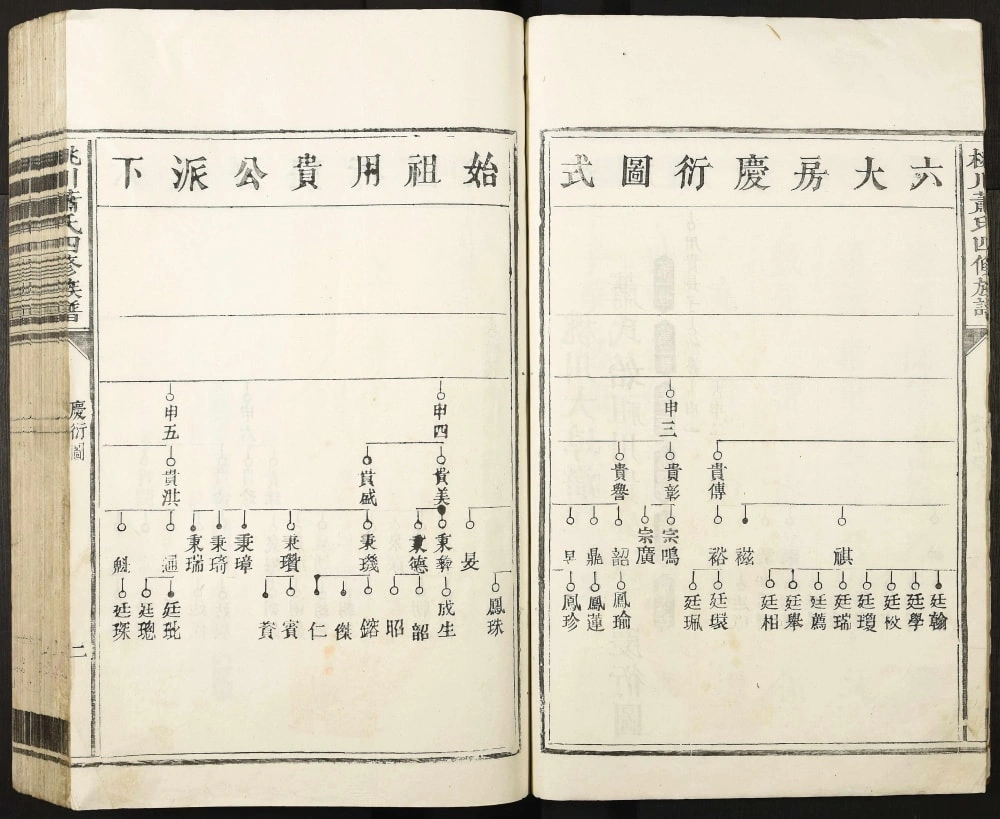 六大房慶衍圖式
申三
貴傳
貴彰
貴譽
祺
磁
裕
宗鳴
宗廣
韶
鼎
廷翰
廷學
廷瓊
廷瑞
廷薦
廷舉
廷相
廷環
廷珮
鳳瑜
鳳蓮
鳳珍
始祖用貴公派下
申四
申五
貴美
貴盛
貴洪
旻
秉彝
秉德
秉璣
秉瓚
秉璋
秉琦
秉瑞
通
魁
鳳珠
成生
韶
昭
鎔
傑
仁
賓
賁
廷玭
廷璁
廷琛
桃川蕭氏四修族譜
慶衍圖
二